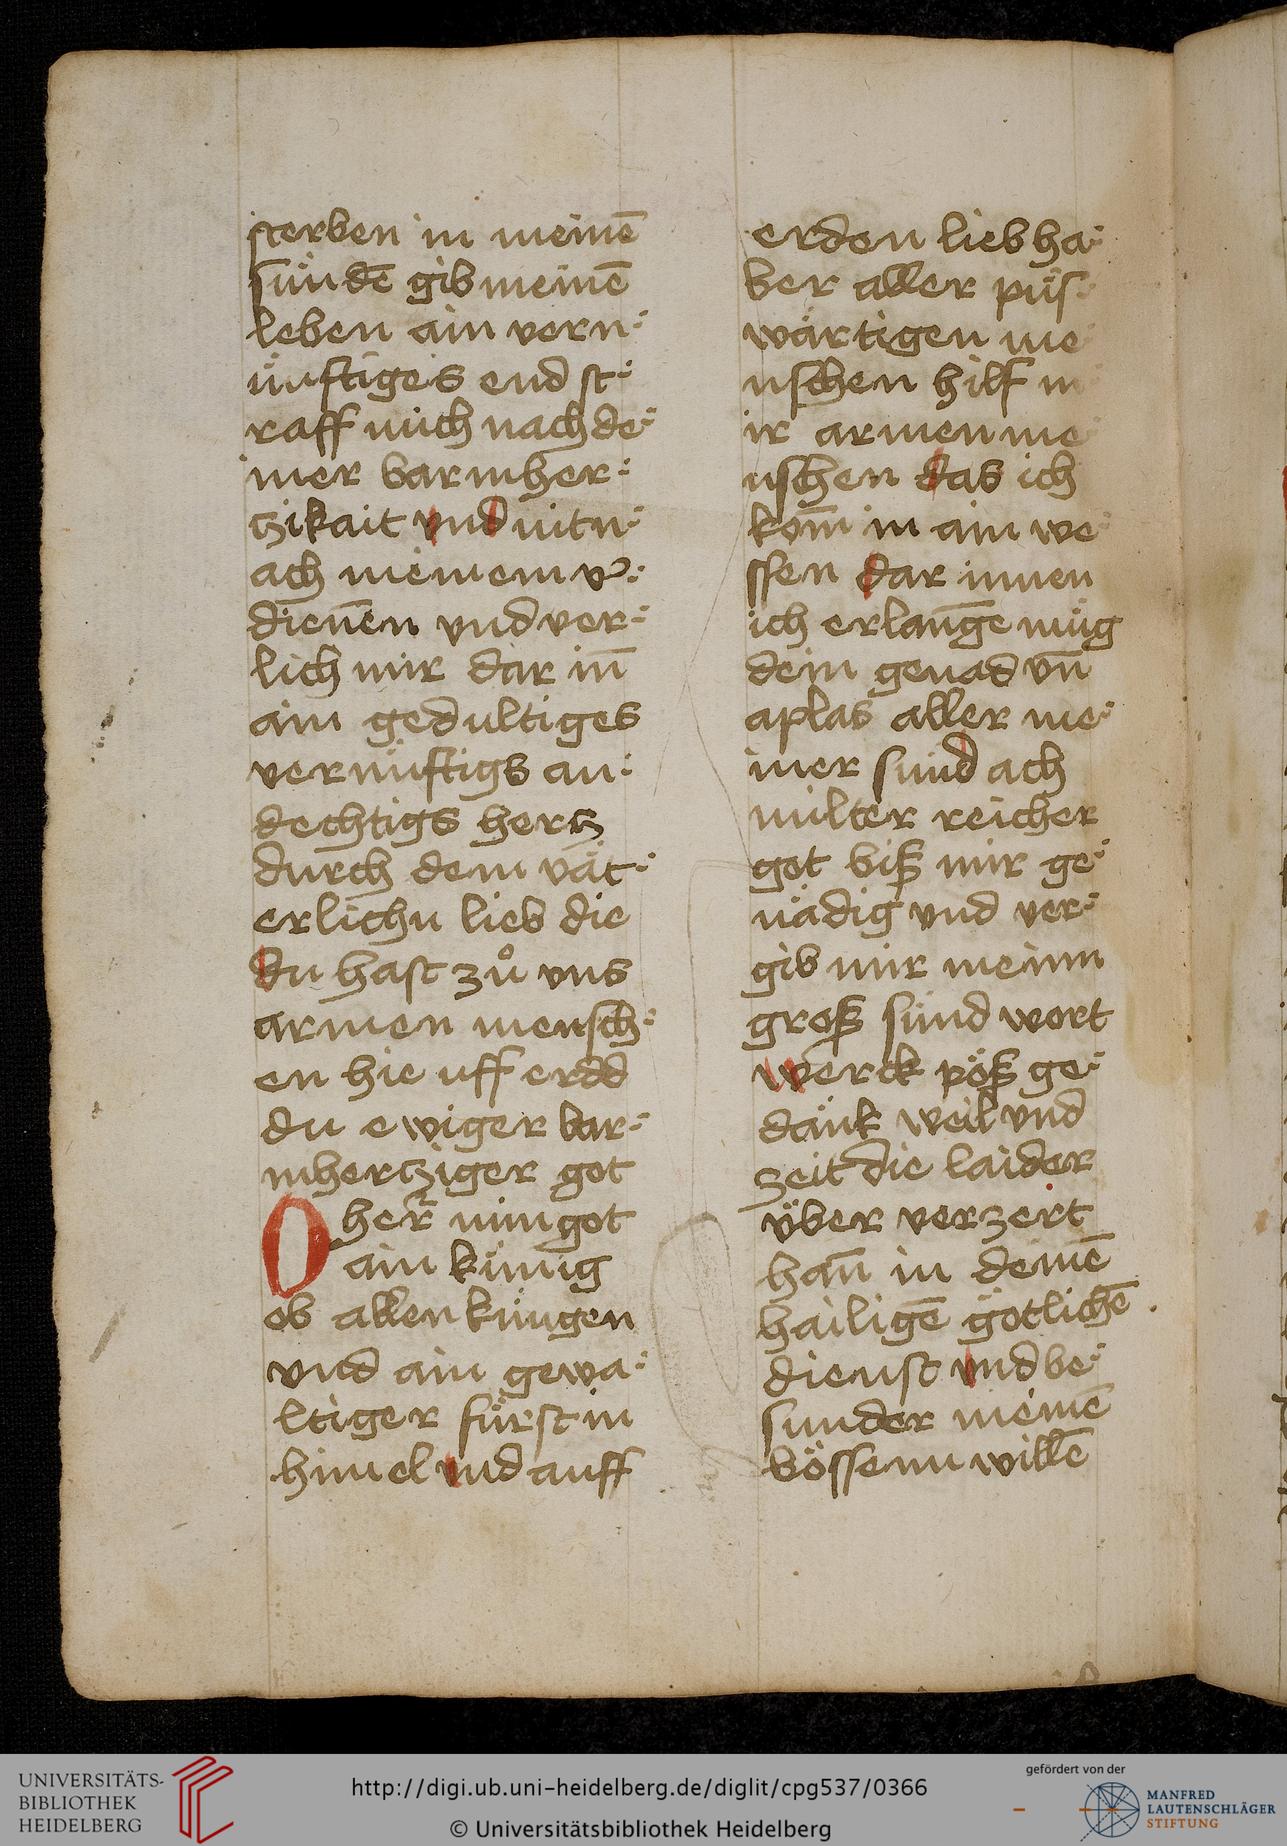 sterben in meinē
sündē gib meinē
leben ain vern⸗
üuftiges end st⸗
raff mich nach de⸗
iner barmher⸗
tzikait vnd nit n⸗
ach meinem v⸗
dienēn vnd ver⸗
lich mir dar in̄
ain gedultiges
vernüftigs an⸗
dechtigs hertz
durch dein vät⸗
erlichn lieb die
du hast zů vns
armen mensch⸗
en hie uff erdd
du ewiger bar⸗
mhertziger got
O her̄ mein got
ain künig
ob allen küngen
vnd ain gewa⸗
ltiger fürst in
himel vnd auff
erden lieb ha⸗
ber aller püs⸗
wärtigen me
nschen hilf m
ir armen me
nschen das ich
kom̄ in ain we⸗
ssen dar innen
ich erlan̄ge müg
dein genad vn̄
aplas aller me⸗
iner sünd ach
milter reicher
got biß mir ge⸗
nädig vnd ver⸗
gib mir meinn
groß sünd wort
werck pöß ge⸗
dänk weil vnd
zeit die laider
über verzert
han̄ in deinē
hailigē götlichē
dienst vnd be⸗
sunder meinē
bössenn willē
UNIVERSITÄTS-
BIBLIOTHEK
HEIDELBERG
http://digi.ub.uni-heidelberg.de/diglit/cpg537/0366
© Universitätsbibliothek Heidelberg
gefördert von der
MANFRED
LAUTENSCHLÄGER
STIFTUNG